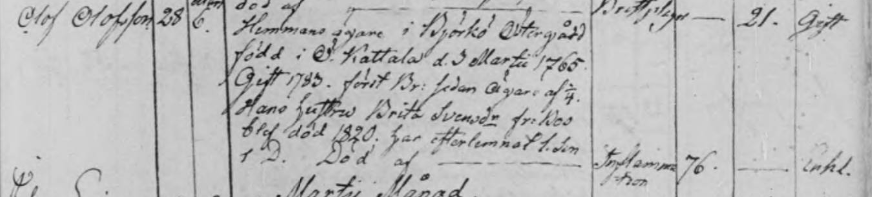 död af
Bröst — 21. Gift
Olof Olofsson 28 6. Hemmans ägare i Björkö Östergård
född i Ö. Kattala d. 3 Martii 1765.
Gift 1783. först Br: sedan ägare af 1/4.
Hans hustru Brita Svensdr fr: Boo
blef död 1820. har efterlemnat 1. Son
1 D. Död af — Inflamma
tion 76. — Enkl.
Martii Månad